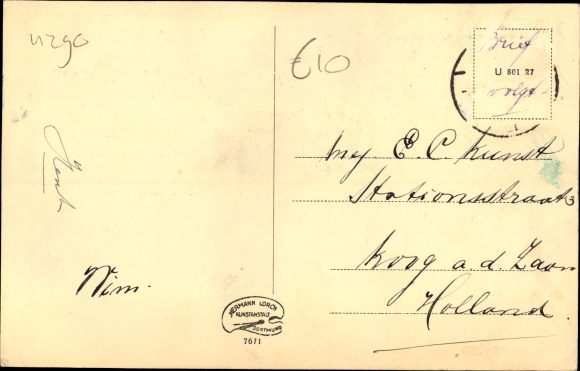 €10
Brief
U 801 27
volgt
mej E. C. Kunst
Stationsstraat
Koog a. d. Zaan
Holland
Henk
Wim.
HERMANN LORCH
KUNSTANSTALT
DORTMUND
7671